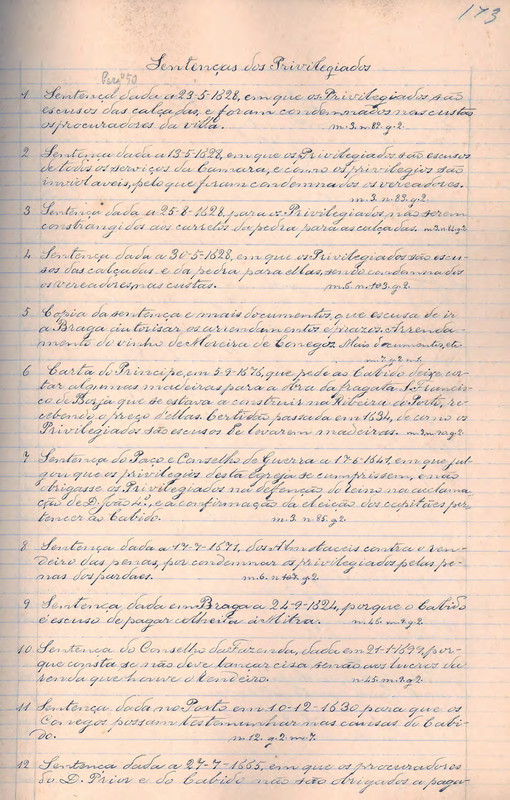 173
Sentenças dos Privilegiados
1 Sentença dada a 23-5-1628, em que os Privilegiados são
escusos das calçadas, e foram condemnados nas custas
os procuradores da villa. m. 3. n. 82. g. 2.
2 Sentença dada a 13-5-1628, em que os Privilegiados são escusos
de todos os serviços da Camara, e como os privilegios são
inviolaveis, pelo que foram condemnados os vereadores.
m. 3. n. 83. g. 2.
3 Sentença dada a 25-8-1628, para os Privilegiados não serem
constrangidos aos carretos da pedra para as calçadas. m. 3. n. 84. g. 2.
4 Sentença dada a 30-5-1628, em que os Privilegiados são escu-
sos das calçadas e da pedra para ellas, sendo condemnados
os vereadores nas custas. m. 6. n. 103. g. 2.
5 Copia da sentença e mais documentos, que escusa de ir
a Braga autorisar os arrendamentos e prazos. Arrenda-
mento do vinho de Moreira de Conegos. Mais documentos, etc.
6 Carta do Principe, em 5-9-1676, que pede ao Cabido deixe cor-
tar algumas madeiras para a obra da fragata S. Francis-
co de Borja que se estava a construir na Ribeira do Porto, re-
cebendo o preço d'ellas. Certidão passada em 1634, de como os
Privilegiados são escusos de levarem madeiras.
7 Sentença do Paço e Conselho de Guerra a 17-6-1641, em que jul-
gou que os privilegios desta Egreja se cumprissem, e não
obrigasse os Privilegiados na defenção do reino na aclama-
ção de D. João 4º, e a confirmação da eleição dos capitães per-
tencer ao Cabido. m. 3. n. 85. g. 2.
8 Sentença dada a 17-7-1671, dos Almotaceis contra o ren-
deiro das penas, por condemnar os privilegiados pelas pe-
nas dos pardaes. m. 6. n. 107. g. 2.
9 Sentença, dada em Braga a 24-9-1524, porque o Cabido
é escuso de pagar colheita á Mitra.
10 Sentença do Conselho da Fazenda, dada em por-
que consta se não deve lançar cisa senão aos lucros da
renda que houve o rendeiro.
11 Sentença dada no Porto em 10-12-1630 para que os
Conegos possam testemunhar nas causas do Cabi-
do. n. 12. g. 2. m. 7.
12 Sentença dada a 27-7-1665, em que os procuradores
do D. Prior e do Cabido não são obrigados a paga-